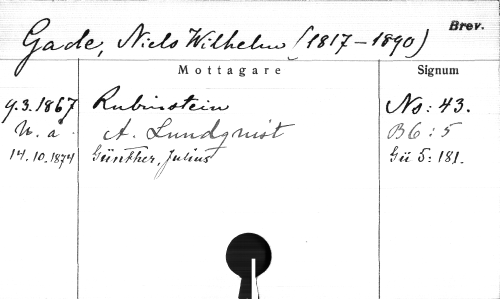 Gade, Niels Wilhelm (1817–1890) Brev.
Mottagare Signum
9.3.1867 Rubinstein Ns: 43.
U. å. A. Lundqvist B6: 5
14.10.1874 Günther, Julius Gü 5: 181.